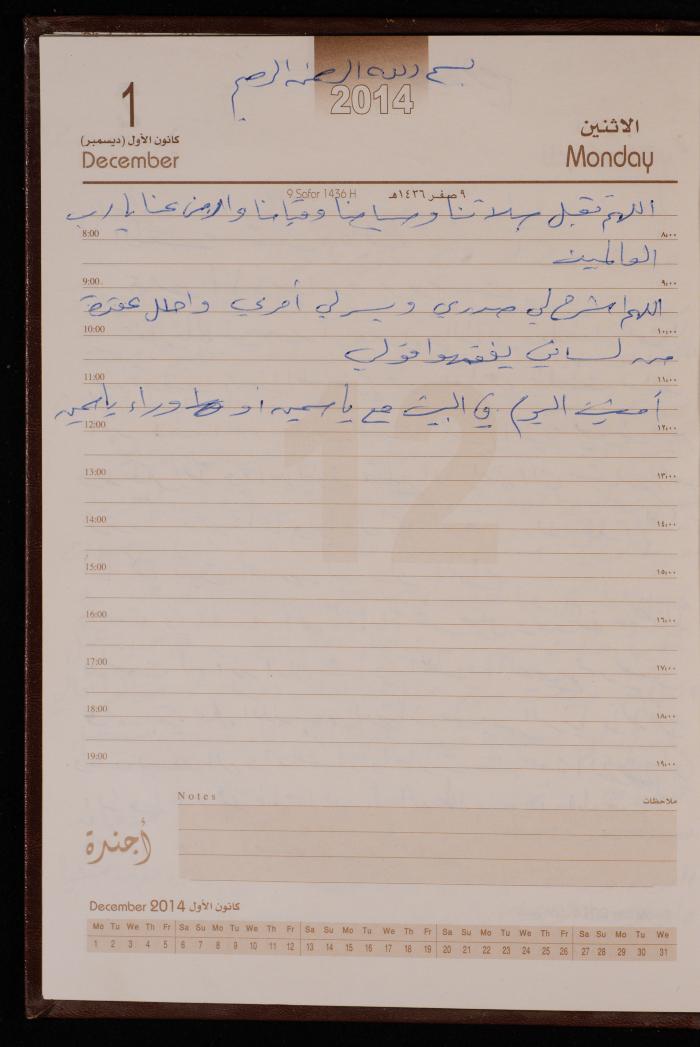 بسم الله الرحمن الرحيم
1
2014
كانون الأول (ديسمبر)
December
الاثنين
Monday
9 Safar 1436 H
٩ صفر ١٤٣٦هـ
اللهم تقبل صلاتنا وصيامنا وقيامنا وارض عنا يا رب
8:00 ٨:٠٠
العالمين
9:00 ٩:٠٠
اللهم اشرح لي صدري ويسر لي أمري واحلل عقدة
10:00 ١٠:٠٠
من لساني يفقهوا قولي
11:00 ١١:٠٠
أمضيت اليوم في البيت مع ياسمين أو وراء ياسمين
12:00 ١٢:٠٠
12
13:00 ١٣:٠٠
14:00 ١٤:٠٠
15:00 ١٥:٠٠
16:00 ١٦:٠٠
17:00 ١٧:٠٠
18:00 ١٨:٠٠
19:00 ١٩:٠٠
Notes ملاحظات
أجندة
December 2014 كانون الأول
Mo Tu We Th Fr Sa Su Mo Tu We Th Fr Sa Su Mo Tu We Th Fr Sa Su Mo Tu We Th Fr Sa Su Mo Tu We
1 2 3 4 5 6 7 8 9 10 11 12 13 14 15 16 17 18 19 20 21 22 23 24 25 26 27 28 29 30 31